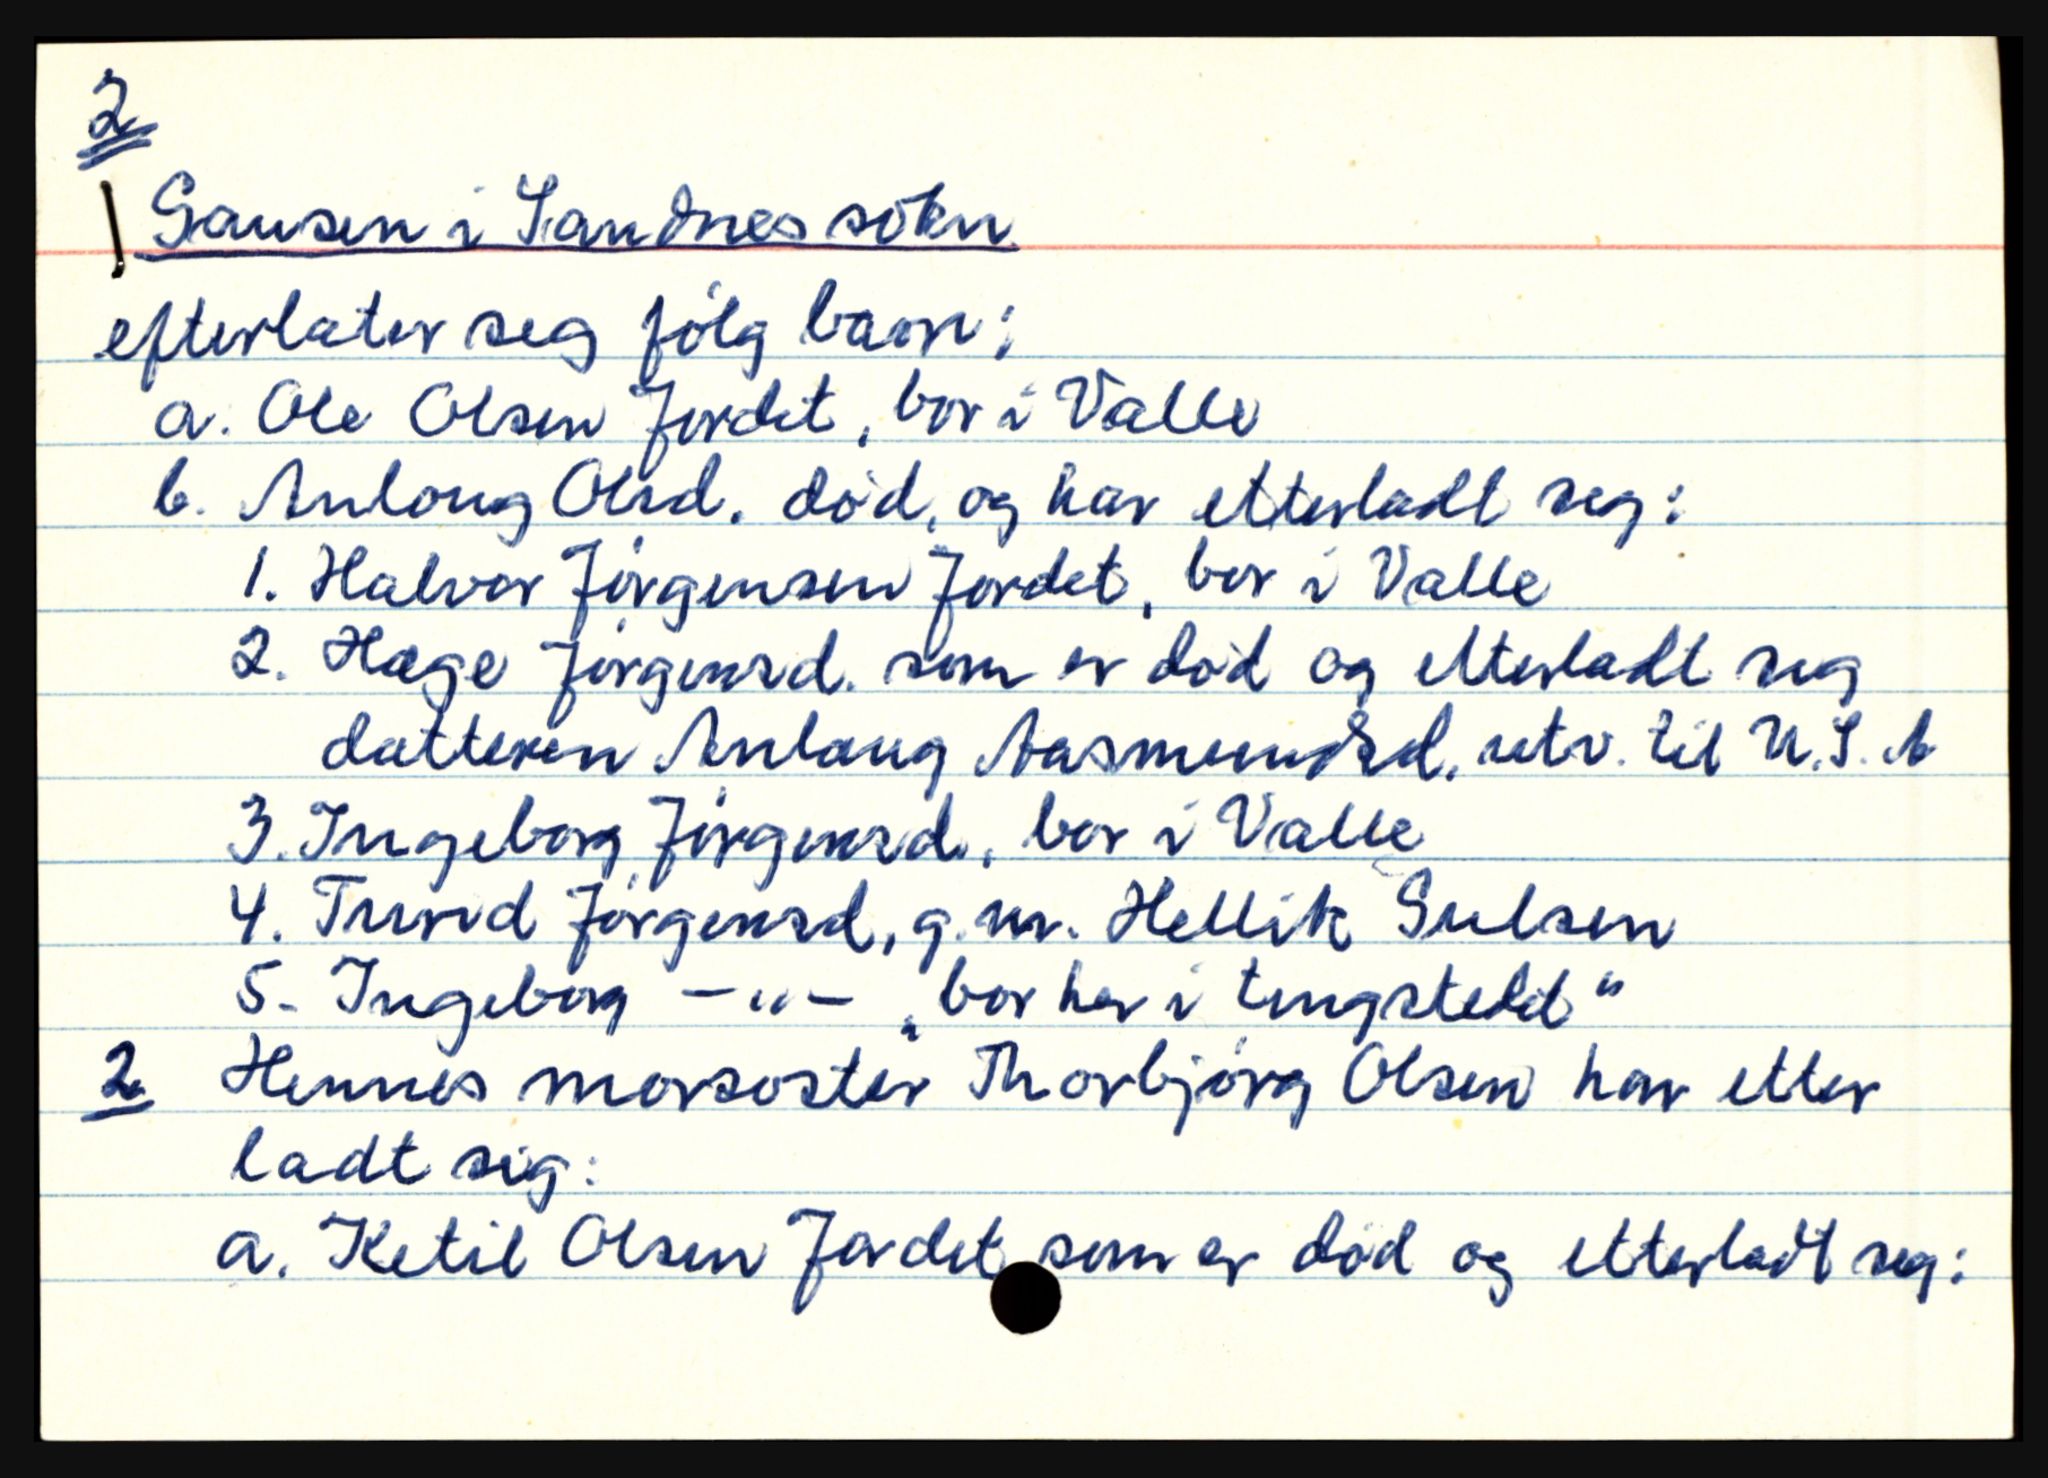 2
Gausen i Sandnes sokn
efterlater seg følg barn:
a. Ole Olsen Jordet, bor i Valle
b. Anloug Olsd. død, og har etterladt seg:
1. Halvor Jørgensen Jordet, bor i Valle
2. Hæge Jørgensd. som er død og etterladt seg
datteren Anlaug Aasmundsd. utv. til U.S.A
3. Ingeborg Jørgensd., bor i Valle
4. Turid Jørgensd, g.m. Hellik Gulsen
5. Ingeborg -"- „bor her i tingstedd"
2 Hennes morsøster Thorbjørg Olsen har etter
ladt sig:
a. Ketil Olsen Jordet som er død og etterladt seg: